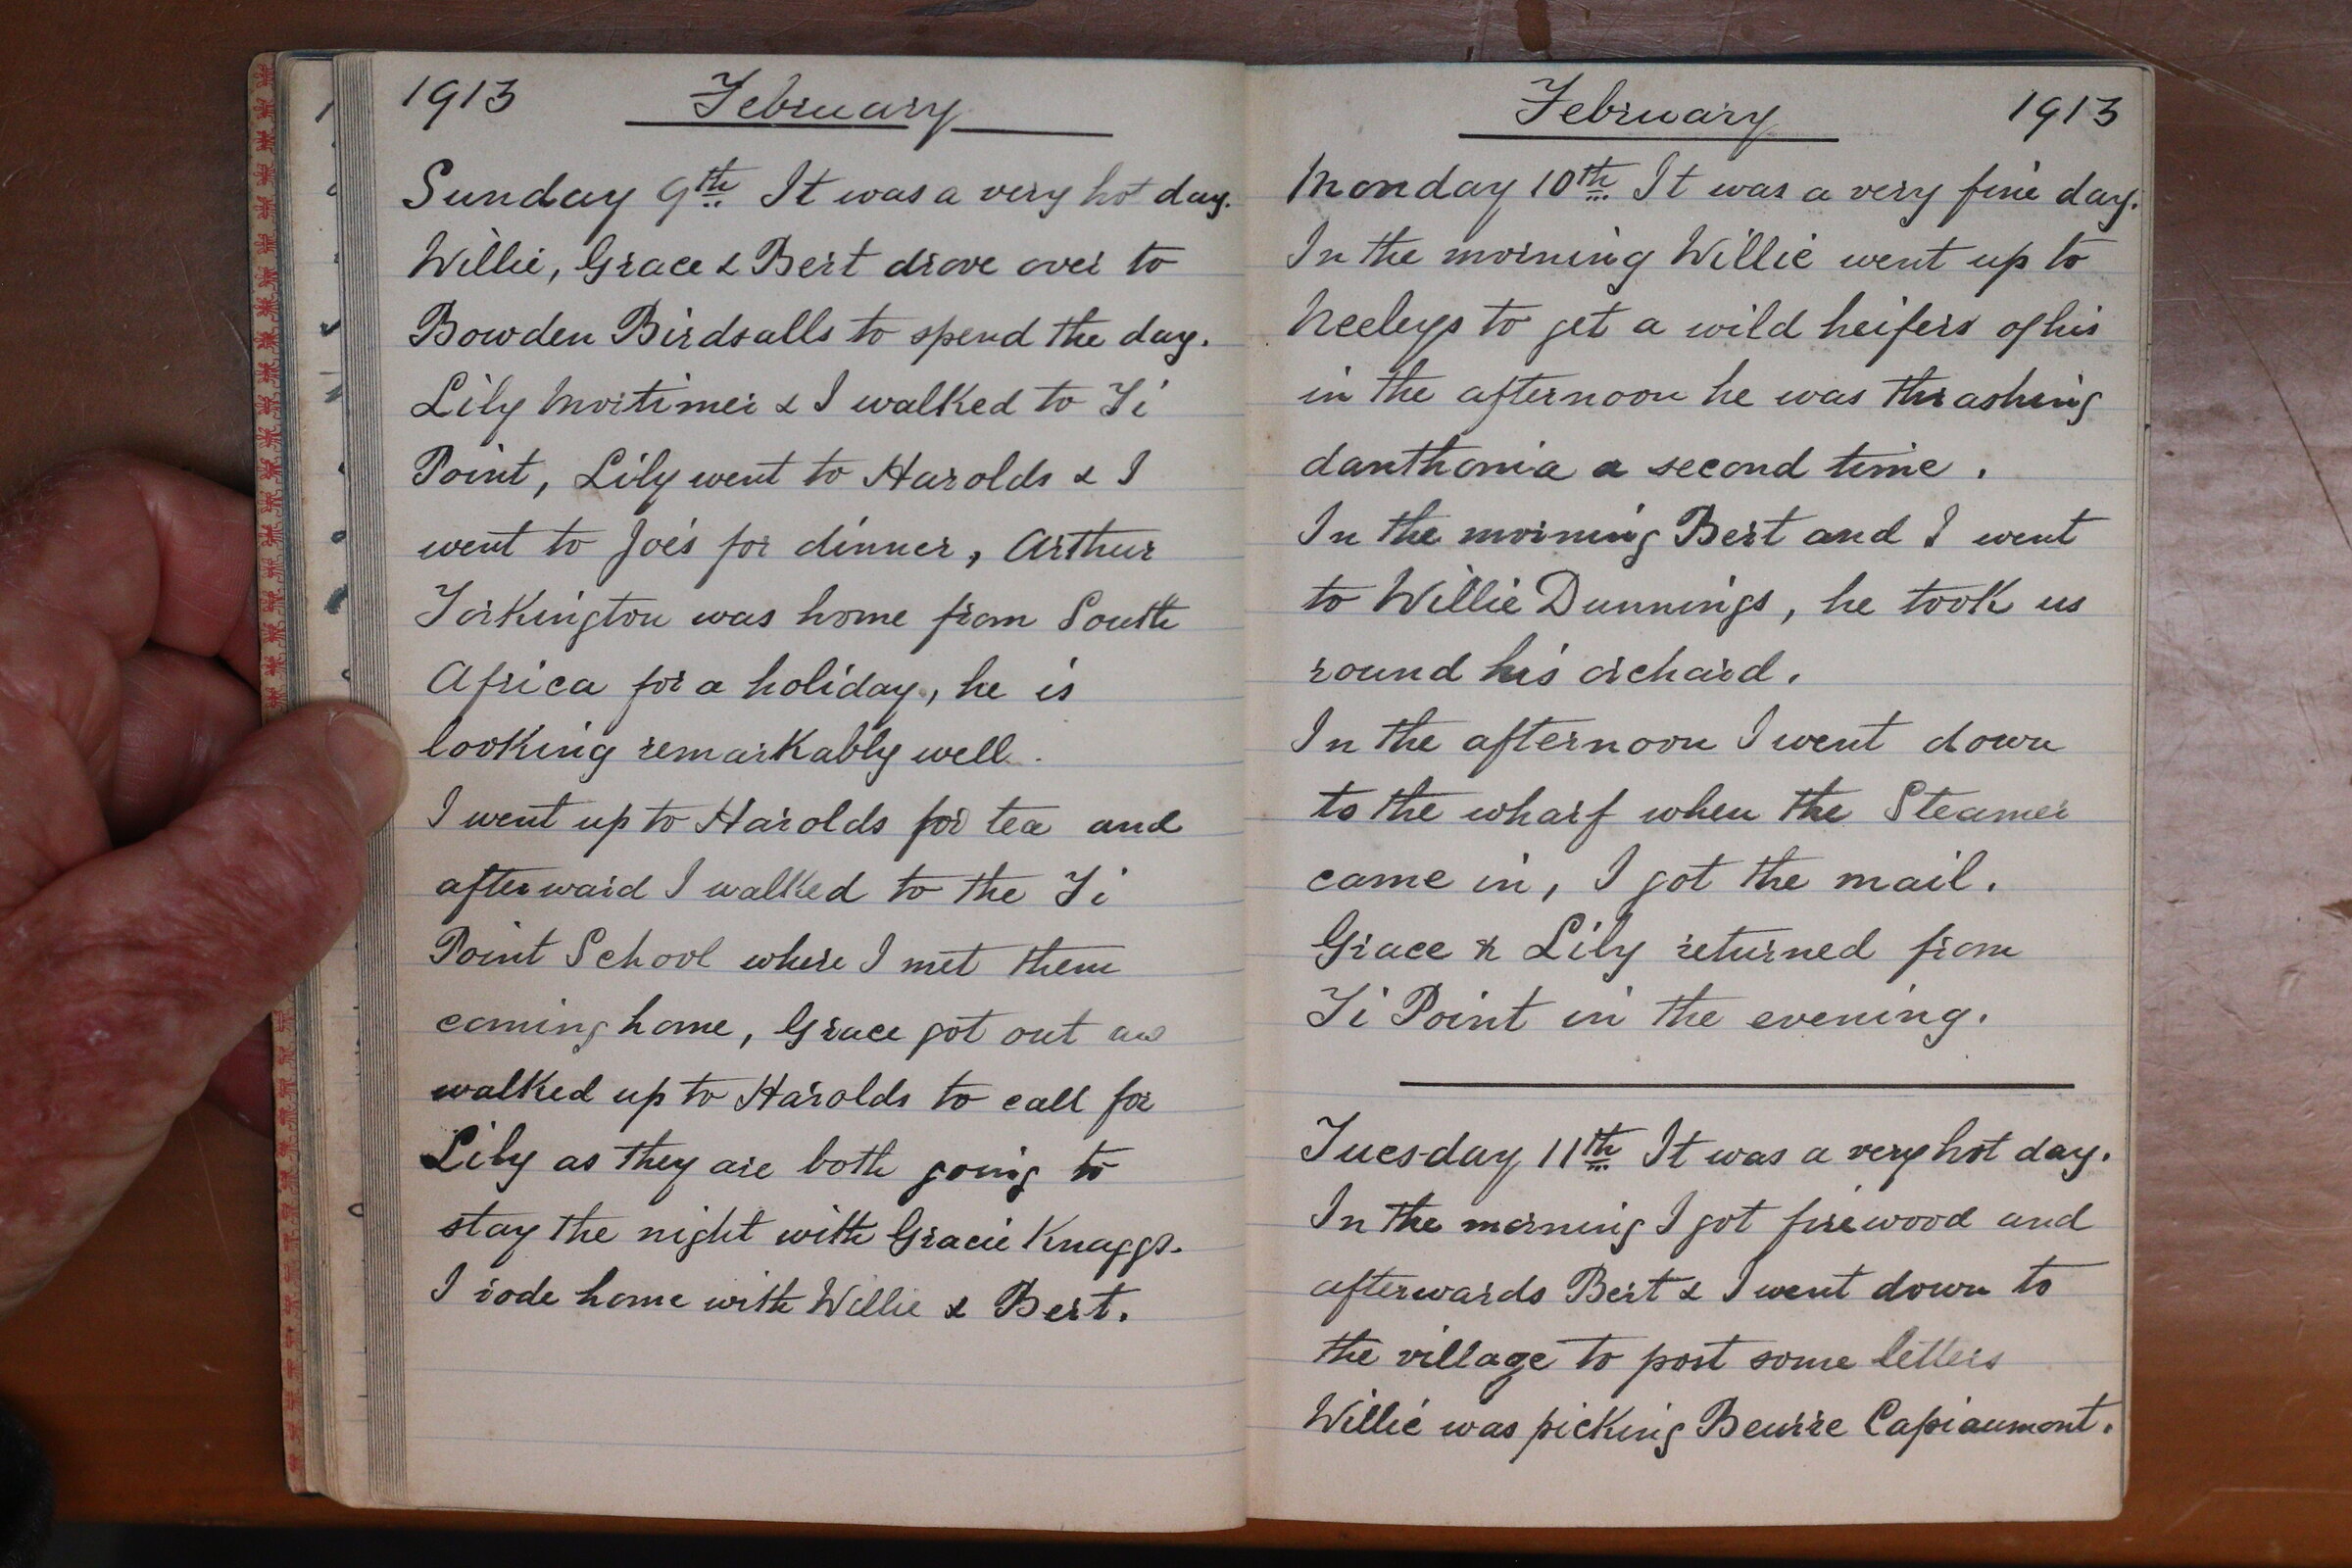 1913 February
Sunday 9th It was a very hot day.
Willie, Grace & Bert drove over to
Bowden Birdsalls to spend the day.
Lily Mortimer & I walked to Ti
Point, Lily went to Harolds & I
went to Joes for dinner, Arthur
Torkington was home from South
Africa for a holiday, he is
looking remarkably well.
I went up to Harolds for tea and
afterward I walked to the Ti
Point School where I met them
coming home, Grace got out
walked up to Harolds to call for
Lily as they are both going to
stay the night with Gracie Knaggs.
I rode home with Willie & Bert.
February 1913
Monday 10th It was a very fine day.
In the morning Willie went up to
Neeleys to get a wild heifers of his
in the afternoon he was thrashing
danthonia a second time.
In the morning Bert and I went
to Willie Dunnings, he took us
round his orchard.
In the afternoon I went down
to the wharf when the Steamer
came in, I got the mail.
Grace & Lily returned from
Ti Point in the evening.
Tuesday 11th It was a very hot day.
In the morning I got firewood and
afterwards Bert & I went down to
the village to post some letters
Willie was picking Beurre Capiaumont.